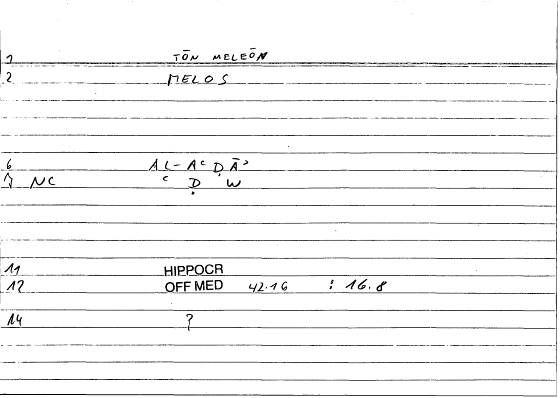 1 TŌN MELEŌN
2 MELOS
6 AL-AᶜḌĀʾ
7 NC ᶜ Ḍ W
11 HIPPOCR
12 OFF MED 42.16 : 16.8
14 ?